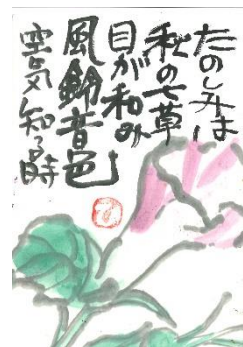 たのしみは
秋の七草
目が和み
風鈴音色
空気知る時